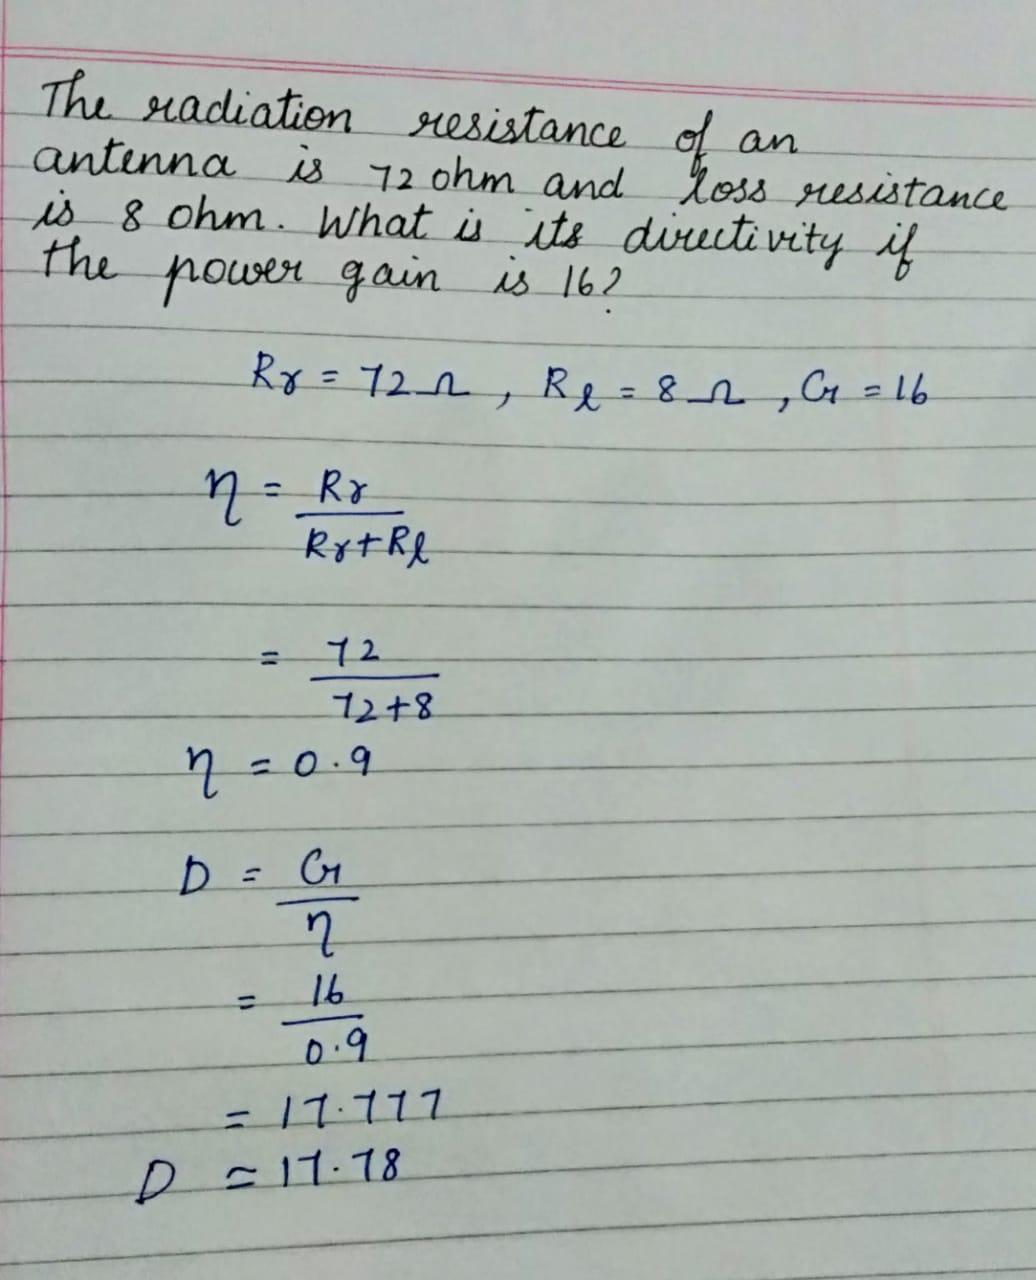 The radiation resistance of an
antenna is 72 ohm and loss resistance
is 8 ohm. What is its directivity if
the power gain is 16?
Rr = 72Ω, Rl = 8Ω, G = 16
η = Rr
Rr+Rl
= 72
72+8
η = 0.9
D = G
η
= 16
0.9
= 17.777
D ≃ 17.78